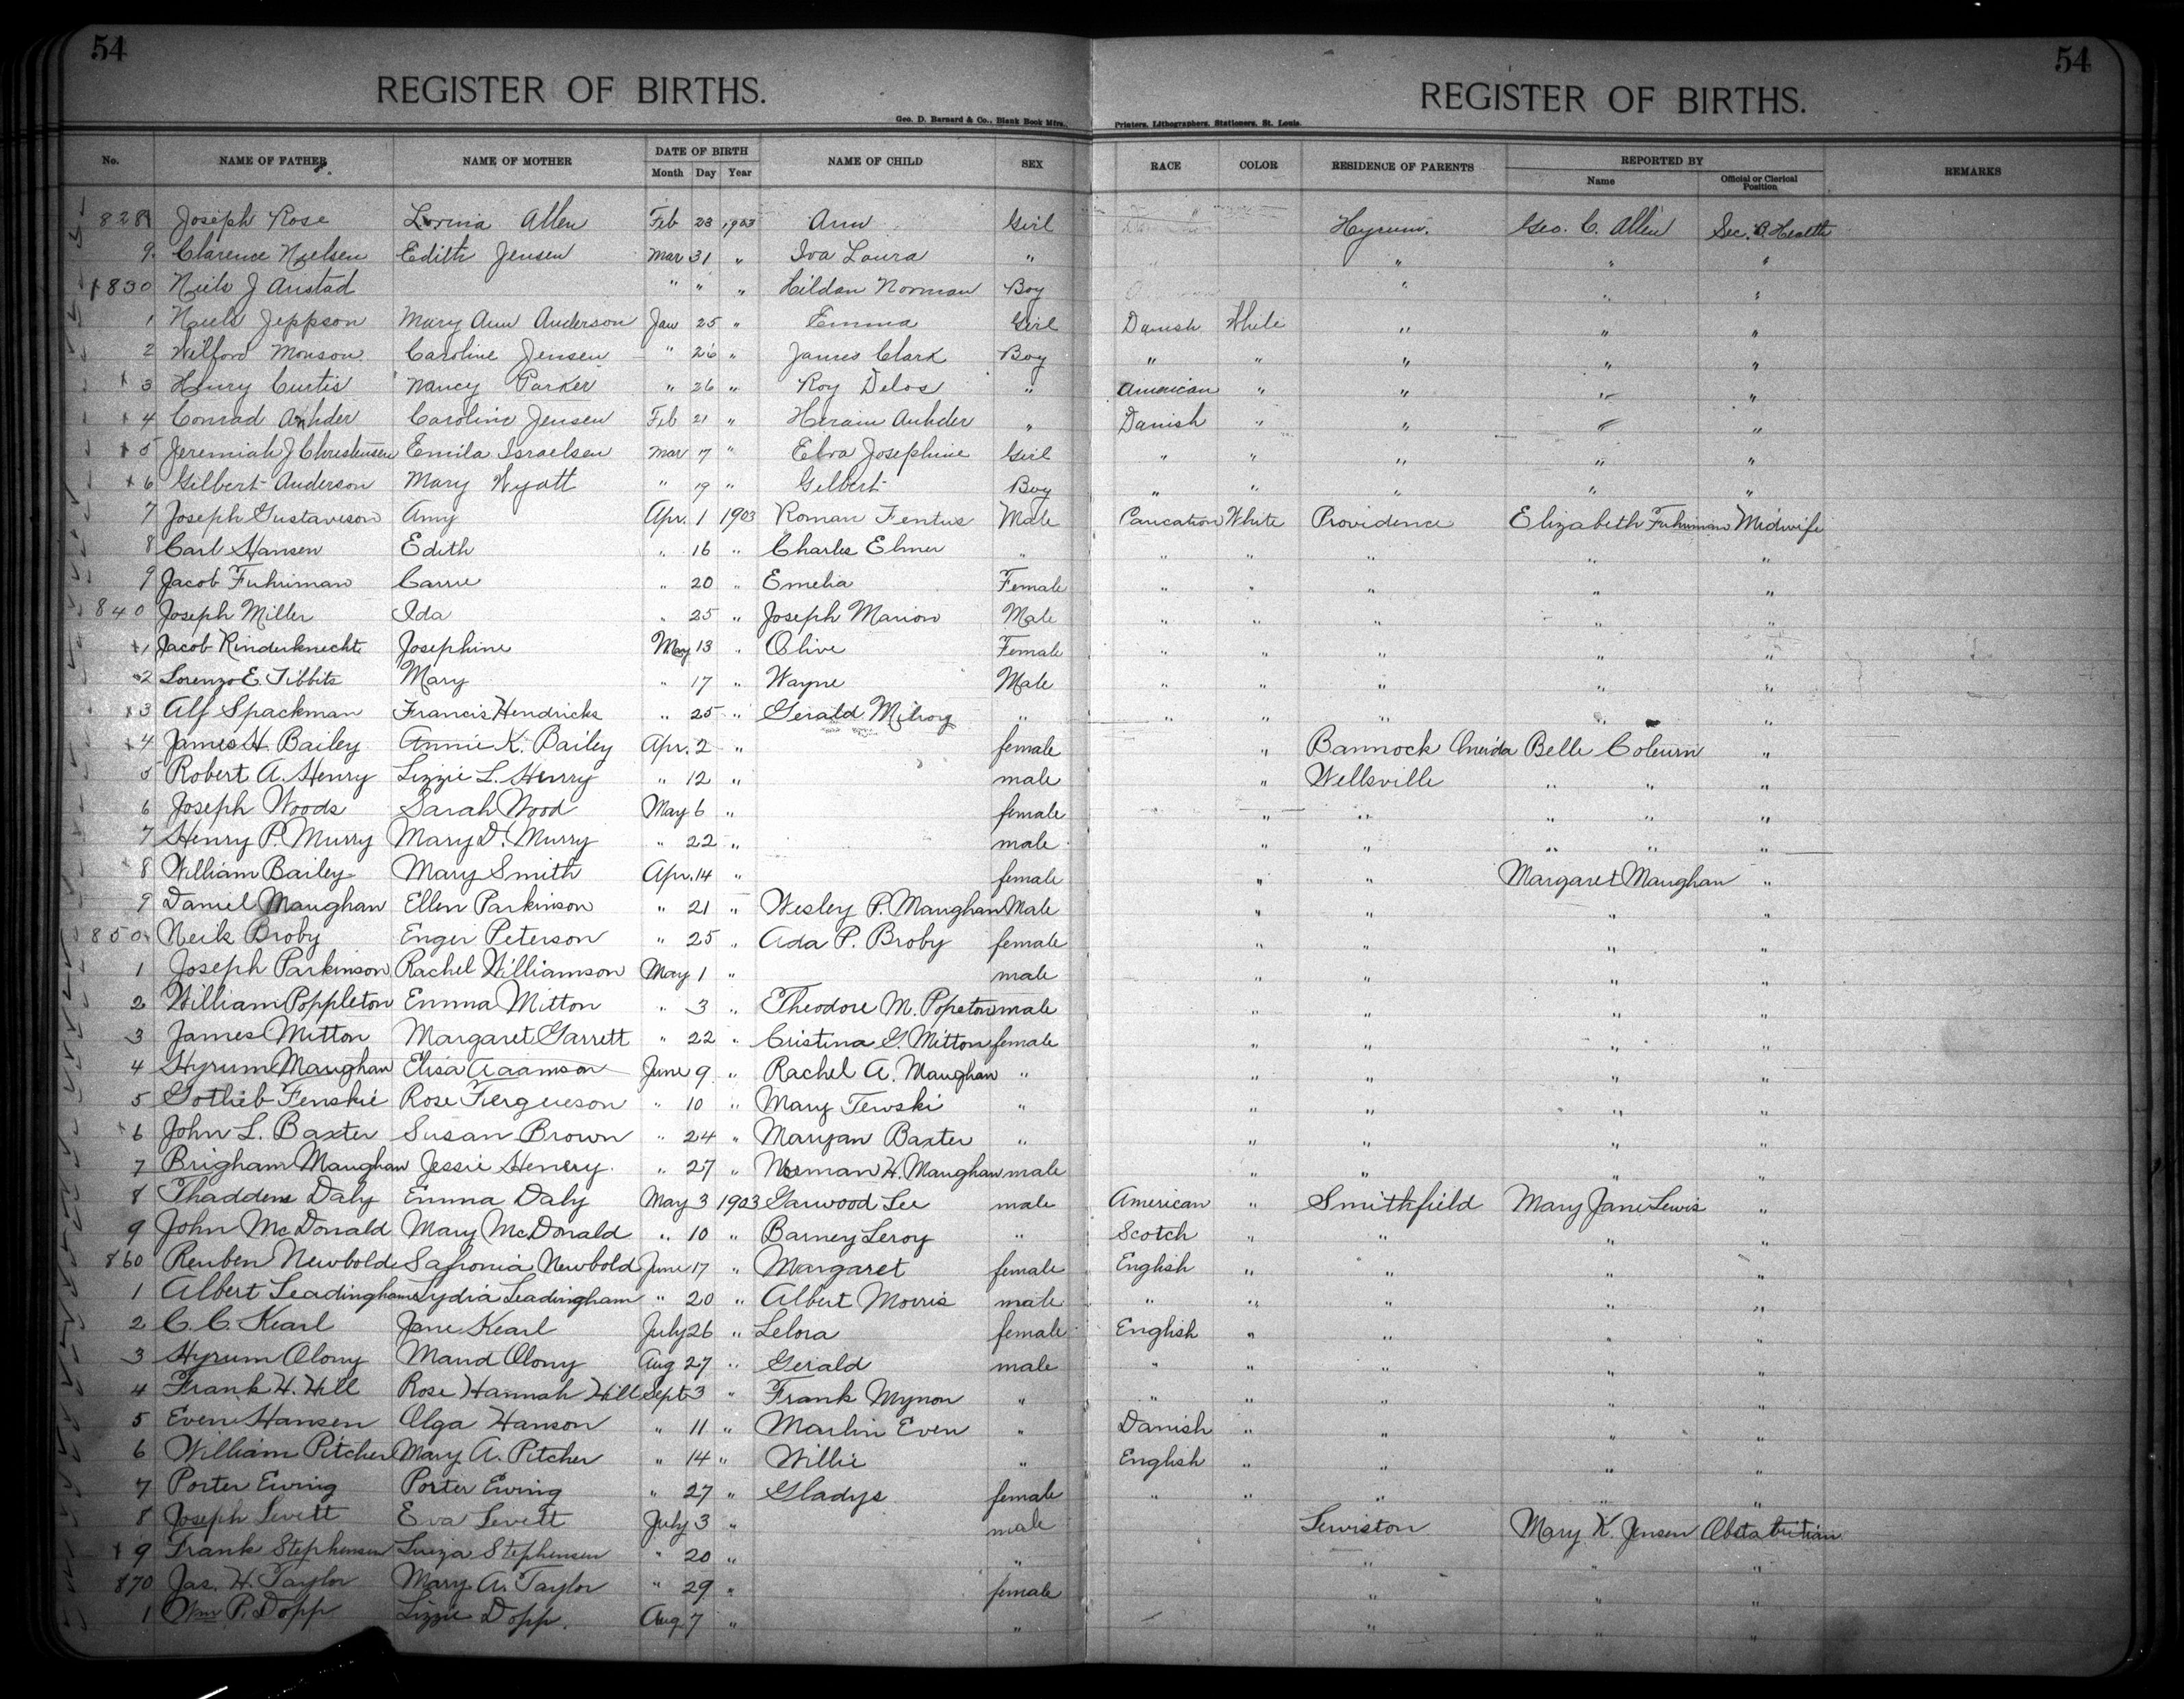 54 54
REGISTER OF BIRTHS. REGISTER OF BIRTHS.
Geo. D. Barnard & Co., Blank Book Mfrs., Printers, Lithographers, Stationers, St. Louis.
No. NAME OF FATHER NAME OF MOTHER DATE OF BIRTH NAME OF CHILD SEX RACE COLOR RESIDENCE OF PARENTS REPORTED BY REMARKS
Month Day Year Name Official or Clerical Position
828 Joseph Rose Lorina Allen Feb 23 1903 Ann Girl Hyrum. Geo. C. Allen Sec. B. Health
9 Clarence Nielsen Edith Jensen Mar 31 " Iva Laura " " " "
830 Niels J Anstad " " " Hildan Norman Boy " " "
1 Niels Jeppson Mary Ann Anderson Jan 25 " Emma Girl Danish White " " "
2 Wilford Monson Caroline Jensen " 26 " James Clark Boy " " " " "
3 Henry Curtis Nancy Parker " 26 " Roy Delos " American " " " "
4 Conrad Anhder Caroline Jensen Feb 21 " Hiram Anhder " Danish " " " "
5 Jeremiah J Christensen Emila Israelsen Mar 7 " Elva Josephine Girl " " " " "
6 Gilbert Anderson Mary Wyatt " 19 " Gilbert Boy " " " " "
7 Joseph Gustaveson Amy Apr. 1 1903 Roman Fentus Male Caucation White Providence Elizabeth Fuhriman Midwife
8 Carl Hansen Edith " 16 " Charles Elmer " " " " " "
9 Jacob Fuhriman Carrie " 20 " Emelia Female " " " " "
840 Joseph Miller Ida " 25 " Joseph Marion Male " " " " "
1 Jacob Rinderknecht Josephine May 13 " Olive Female " " " " "
2 Lorenzo E. Tibbits Mary " 17 " Wayne Male " " " " "
3 Alf Spackman Francis Hendricks " 25 " Gerald Milroy " " " " " "
4 James H. Bailey Annie K. Bailey Apr. 2 " female " Bannock Oneida Belle Coburn "
5 Robert A. Henry Lizzie L. Henry " 12 " male " Wellsville " " "
6 Joseph Woods Sarah Wood May 6 " female " " " " "
7 Henry P. Murry Mary D. Murry " 22 " male " " " " "
8 William Bailey Mary Smith Apr. 14 " female " " Margaret Maughan "
9 Daniel Maughan Ellen Parkinson " 21 " Wesley P. Maughan Male " " " "
850 Neils Broby Enger Peterson " 25 " Ada P. Broby female " " " "
1 Joseph Parkinson Rachel Williamson May 1 " male " " " "
2 William Poppleton Emma Mitton " 3 " Theodore M. Popeton male " " " "
3 James Mitton Margaret Garrett " 22 " Cristina G. Mitton female " " " "
4 Hyrum Maughan Elisa Adamson June 9 " Rachel A. Maughan " " " " "
5 Gotlieb Fenskie Rose Fergueson " 10 " Mary Tewski " " " " "
6 John L. Baxter Susan Brown " 24 " Maryan Baxter " " " " "
7 Brigham Maughan Jessie Henery " 27 " Norman H. Maughan male " " " "
8 Thaddens Daly Emma Daly May 3 1903 Garwood Lee male American " Smithfield Mary Jane Lewis "
9 John McDonald Mary McDonald " 10 " Barney Leroy " Scotch " " " "
860 Reuben Newbold Safronia Newbold June 17 " Margaret female English " " " "
1 Albert Leadingham Lydia Leadingham " 20 " Albert Morris male " " " " "
2 C. C. Kearl Jane Kearl July 26 " Lelora female English " " " "
3 Hyrum Olony Maud Olony Aug 27 " Gerald male " " " " "
4 Frank H. Hill Rose Hannah Hill Sept 3 " Frank Mynon " " " " " "
5 Even Hansen Olga Hanson " 11 " Marlin Even " Danish " " " "
6 William Pitcher Mary A. Pitcher " 14 " Willie " English " " " "
7 Porter Ewing Porter Ewing " 27 " Gladys female " " " " "
8 Joseph Levett Eva Levett July 3 " male Lewiston Mary K. Jensen Obstatritian
9 Frank Stephensen Luiza Stephensen " 20 " " " " "
870 Jas. H. Taylor Mary A. Taylor " 29 " female " " "
1 Wm P. Dopp Lizzie Dopp. Aug 7 " " " " "